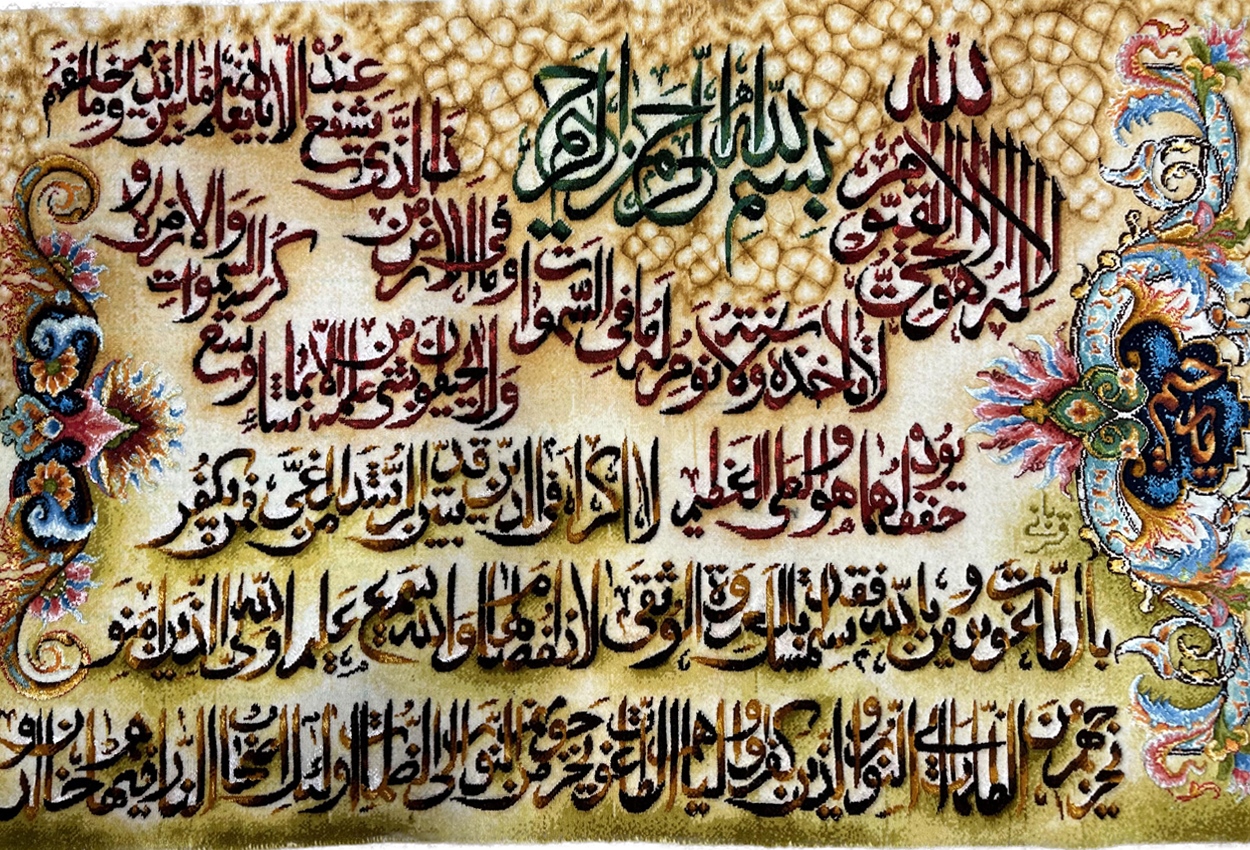 بسم الله الرحمن الرحيم
الله
لا اله الا هو الحي القيوم
لا تاخذه سنة ولا نوم له ما في السموات
وما في الارض من
ذا الذي يشفع
عنده الا باذنه يعلم ما بين ايديهم وما خلفهم
ولا يحيطون بشيء من علمه الا بما شاء وسع
كرسيه السموات والارض ولا
يؤده حفظهما وهو العلي العظيم
لا اكراه في الدين قد تبين الرشد من الغي فمن يكفر
بالطاغوت ويؤمن بالله فقد استمسك بالعروة الوثقى لا انفصام لها والله سميع عليم الله ولي الذين آمنوا
يخرجهم من الظلمات الى النور والذين كفروا اولياؤهم الطاغوت يخرجونهم من النور الى الظلمات اولئك اصحاب النار هم فيها خالدون